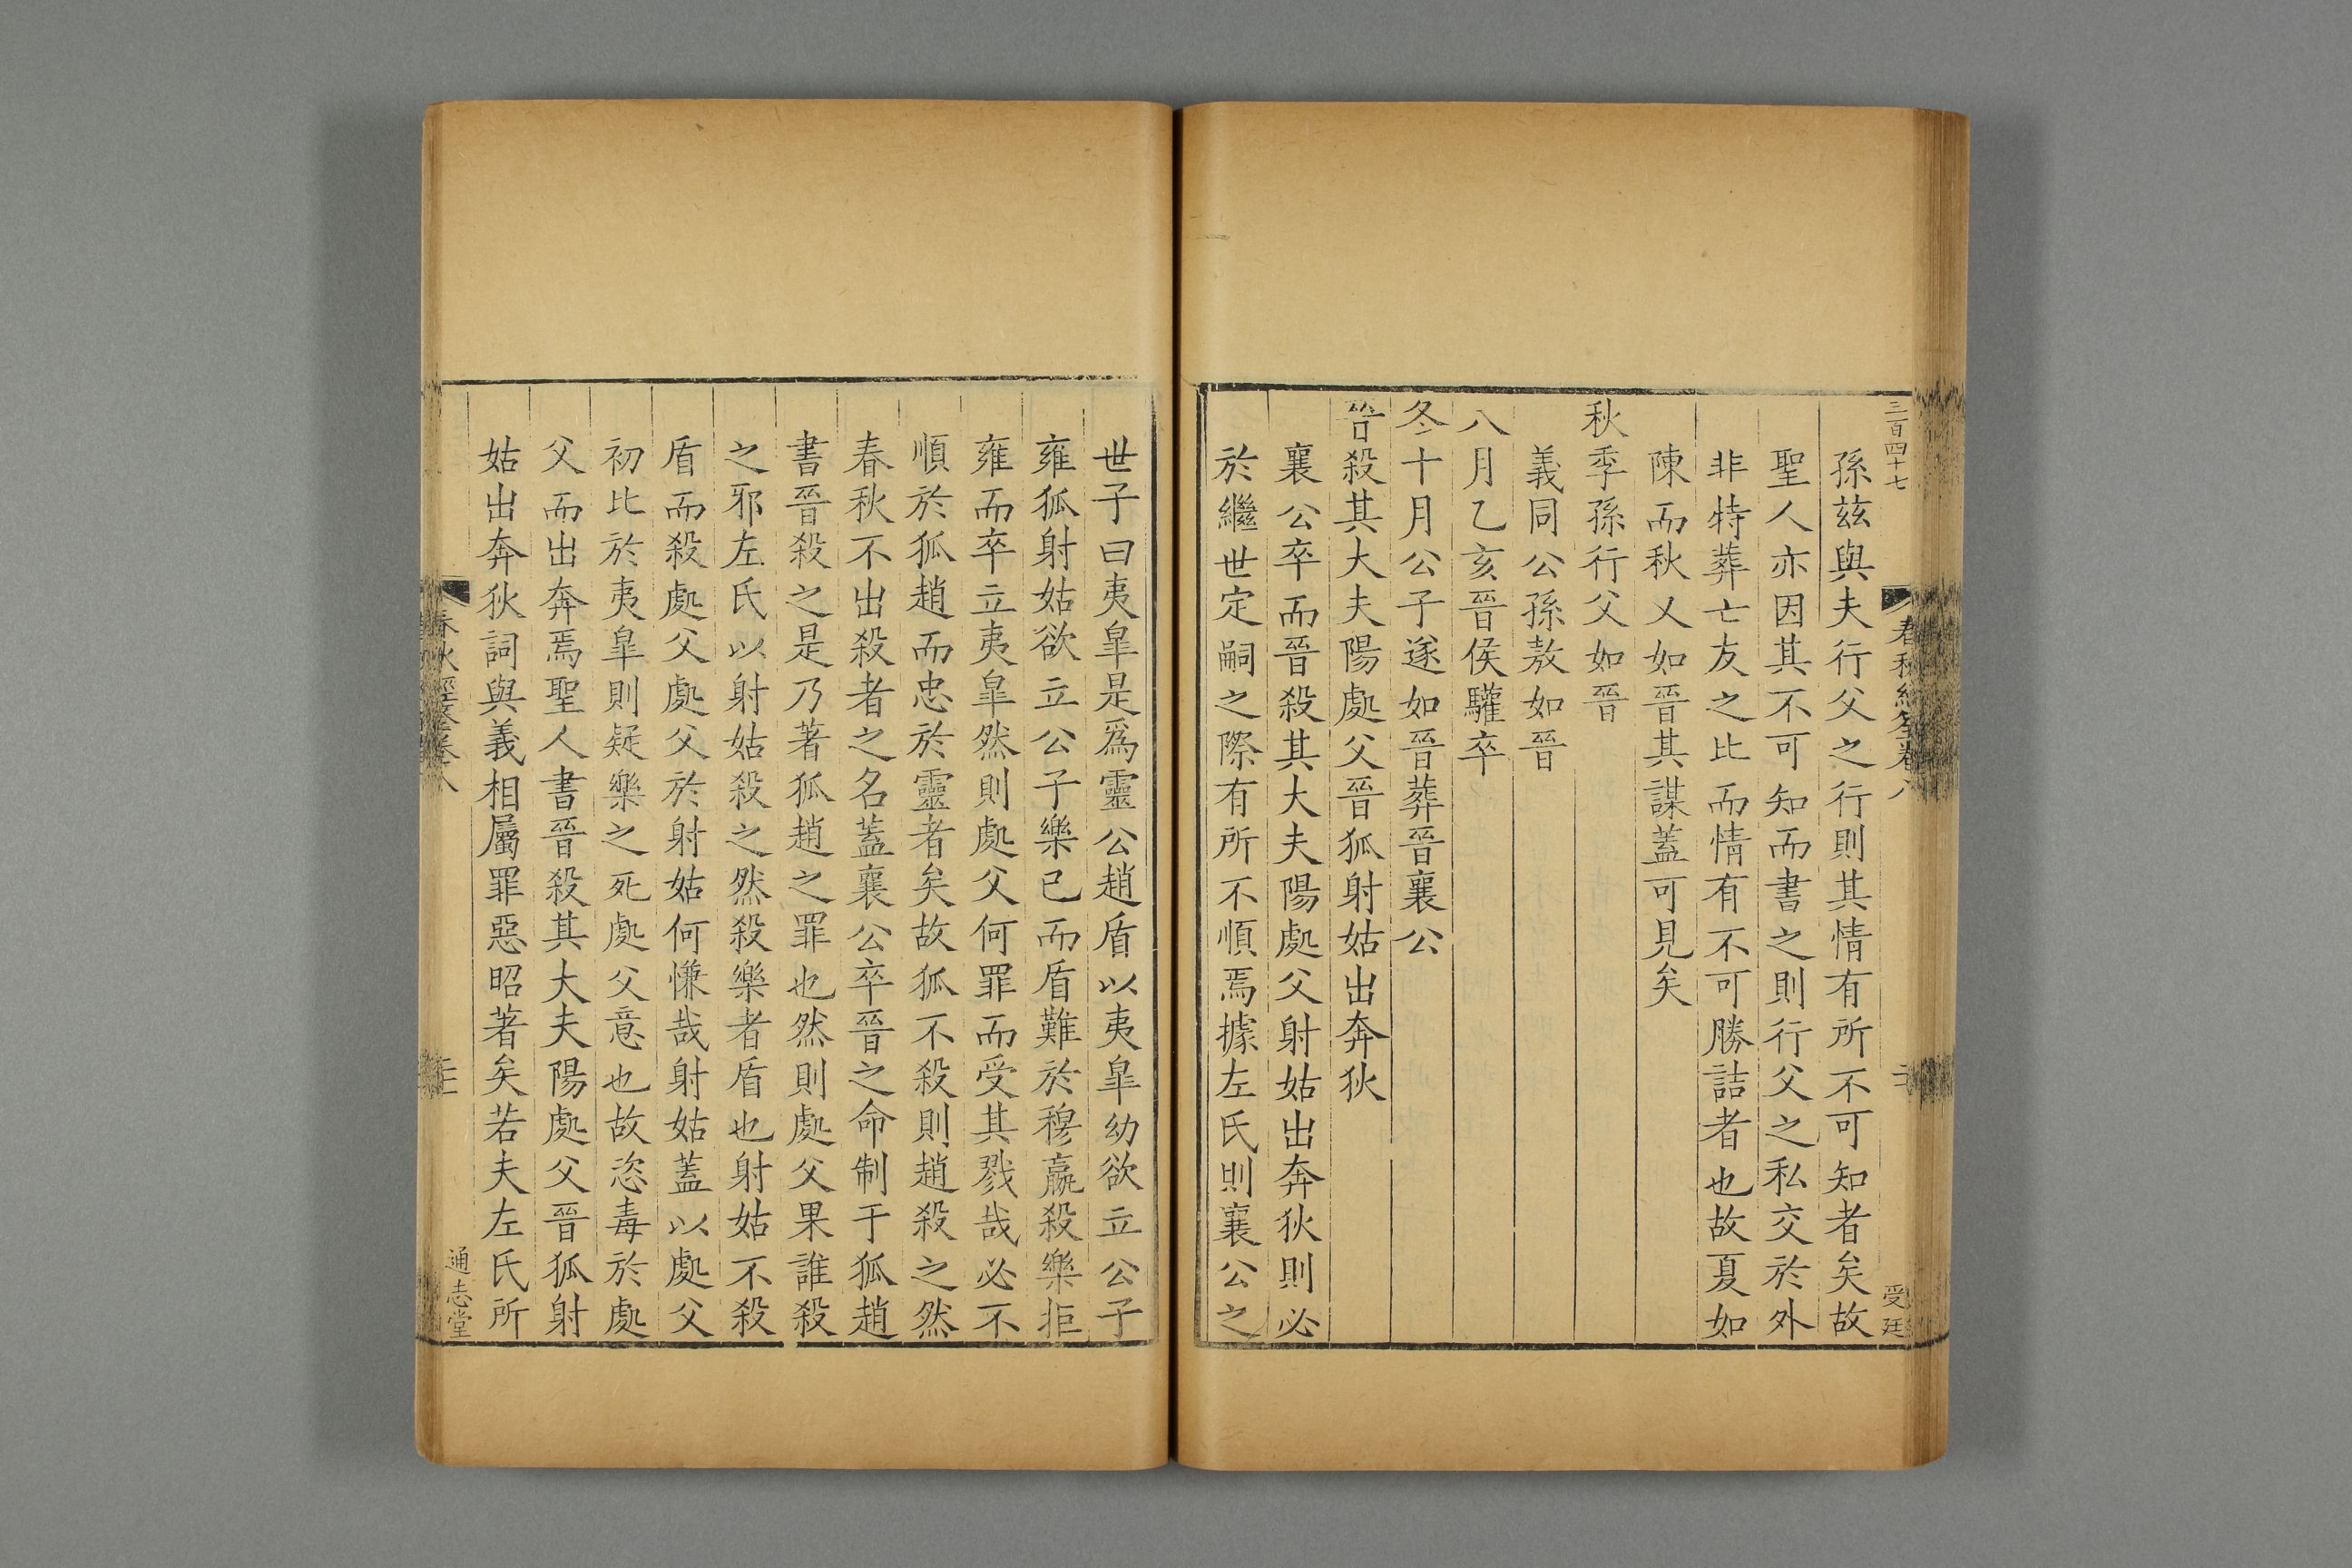 三百四十七
春秋經筌卷八
二十
受廷
孫茲與夫行父之行則其情有所不可知者矣故
聖人亦因其不可知而書之則行父之私交於外
非特葬亡友之比而情有不可勝詰者也故夏如
陳而秋又如晉其謀蓋可見矣
秋季孫行父如晉
義同公孫敖如晉
八月乙亥晉侯驩卒
冬十月公子遂如晉葬晉襄公
晉殺其大夫陽處父晉狐射姑出奔狄
襄公卒而晉殺其大夫陽處父射姑出奔狄則必
於繼世定嗣之際有所不順焉據左氏則襄公之
世子曰夷皐是爲靈公趙盾以夷皐幼欲立公子
雍狐射姑欲立公子樂已而盾難於穆嬴殺樂拒
雍而卒立夷皐然則處父何罪而受其戮哉必不
順於狐趙而忠於靈者矣故狐不殺則趙殺之然
春秋不出殺者之名蓋襄公卒晉之命制于狐趙
書晉殺之是乃著狐趙之罪也然則處父果誰殺
之邪左氏以射姑殺之然殺樂者盾也射姑不殺
盾而殺處父處父於射姑何慊哉射姑蓋以處父
初比於夷皐則疑樂之死處父意也故恣毒於處
父而出奔焉聖人書晉殺其大夫陽處父晉狐射
姑出奔狄詞與義相屬罪惡昭著矣若夫左氏所
春秋經筌卷八
通志堂